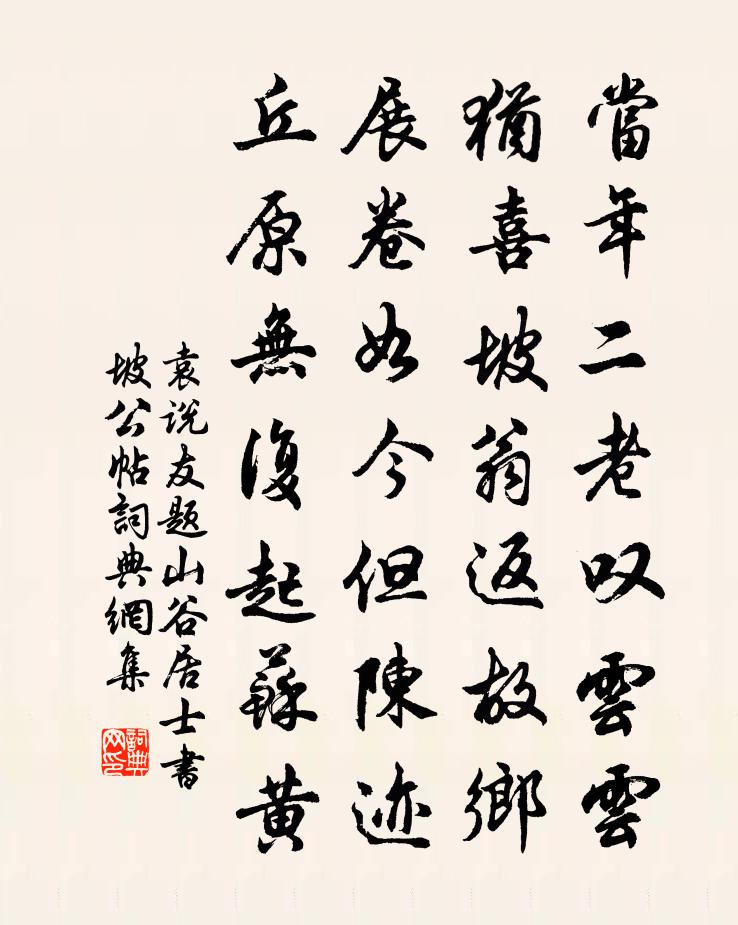 當年二老叹雲雲
猶喜坡翁返故鄉
展卷如今但陳迹
丘原無復起蘇黄
袁说友题山谷居士書
坡公帖詞典網集
詞典网印